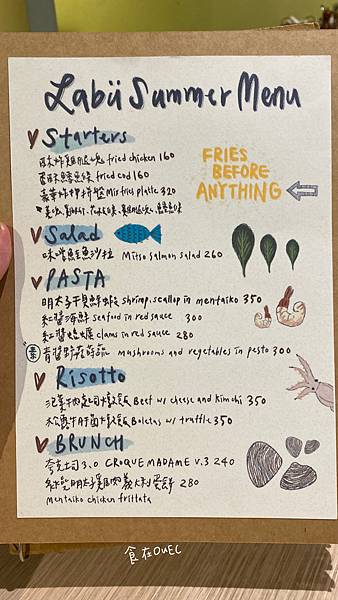 Labii Summer Menu
Starters
酥炸雞腿塊 fried chicken 160
香酥鱈魚條 fried cod 160
豪華炸拼拼盤 Mix fries platte 320
FRIES
BEFORE
ANYTHING
Salad
味噌鮭魚沙拉 Miso salmon salad 260
PASTA
明太子干貝鮮蝦 shrimp, scallop in mentaiko 350
紅醬海鮮 seafood in red sauce 300
紅醬蛤蠣 clams in red sauce 280
素 青醬野菇蔬菇 mushrooms and vegetables in pesto 300
Risotto
泡菜牛肉起司燉飯 Beef w/ cheese and kimchi 350
松露牛肝菌燉飯 Boletus w/ truffle 350
BRUNCH
夸克土司 3.0 CROQUE MADAME V.3 240
明太子雞肉義大利蛋餅 280
Mentaiko chicken frittata
食在OUEC